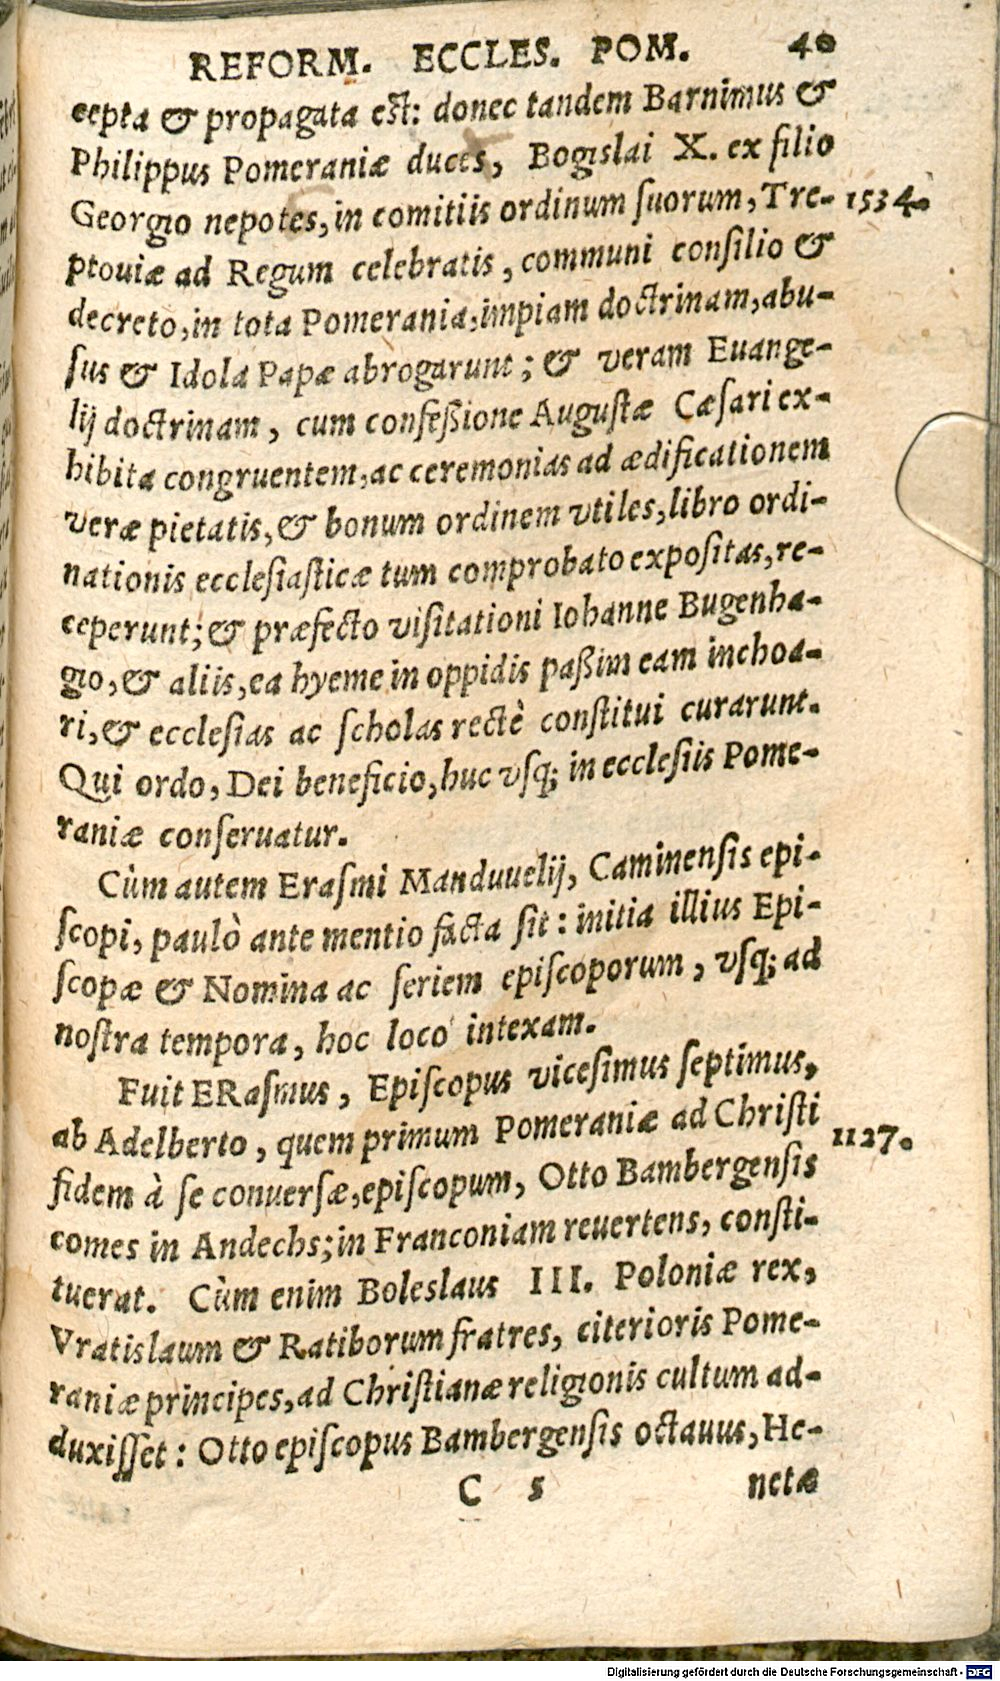 REFORM. ECCLES. POM. 40
cepta & propagata est: donec tandem Barnimus &
Philippus Pomeraniæ duces, Bogislai X. ex filio
Georgio nepotes, in comitiis ordinum ſuorum, Tre- 1534.
ptouiæ ad Regum celebratis, communi conſilio &
decreto, in tota Pomerania, impiam doctrinam, abu-
ſus & Idola Papæ abrogarunt; & veram Euange-
lij doctrinam, cum confeßione Auguſtæ Cæſari ex-
hibita congruentem, ac ceremonias ad ædificationem
veræ pietatis, & bonum ordinem vtiles, libro ordi-
nationis eccleſiaſticæ tum comprobato expoſitas, re-
ceperunt; & præfecto viſitationi Iohanne Bugenha-
gio, & aliis, ea hyeme in oppidis paßim eam inchoa-
ri, & eccleſias ac ſcholas rectè conſtitui curarunt.
Qui ordo, Dei beneficio, huc vſq; in eccleſiis Pome-
raniæ conſeruatur.
Cùm autem Eraſmi Manduuelij, Caminenſis epi-
ſcopi, paulò ante mentio facta ſit: initia illius Epi-
ſcopæ & Nomina ac ſeriem epiſcoporum, vſq; ad
noſtra tempora, hoc loco intexam.
Fuit ERaſmus, Epiſcopus viceſimus ſeptimus,
ab Adelberto, quem primum Pomeraniæ ad Chriſti 1127.
fidem à ſe conuerſæ, epiſcopum, Otto Bambergenſis
comes in Andechs; in Franconiam reuertens, conſti-
tuerat. Cùm enim Boleslaus III. Poloniæ rex,
Vratislaum & Ratiborum fratres, citerioris Pome-
raniæ principes, ad Chriſtianæ religionis cultum ad-
duxiſſet: Otto epiſcopus Bambergenſis octauus, He-
C 5 netæ
Digitalisierung gefördert durch die Deutsche Forschungsgemeinschaft - DFG